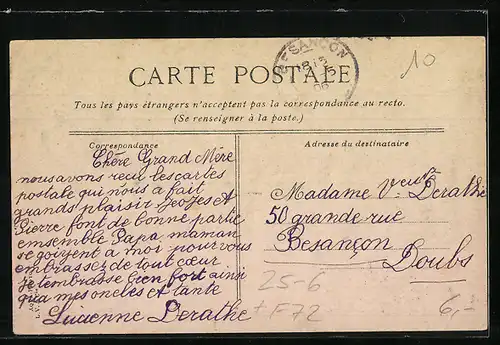 CARTE POSTALE
Tous les pays étrangers n'acceptent pas la correspondance au recto.
(Se renseigner à la poste.)
Correspondance
Chère Grand Mère
nous avons recu les cartes
postale qui nous a fait
grands plaisir Georges et
Pierre font de bonne partie
emsemble Papa maman
se goigent a moi pour vous
embrassez de tout cœur
je tembrasse bien fort ainsi
qua mes oncles et tante
Lucienne Derathe
Adresse du destinataire
Madame Veuve Derathe
50 grande rue
Besançon
Doubs
BESANÇON
10
25-6
+ F72
6,-